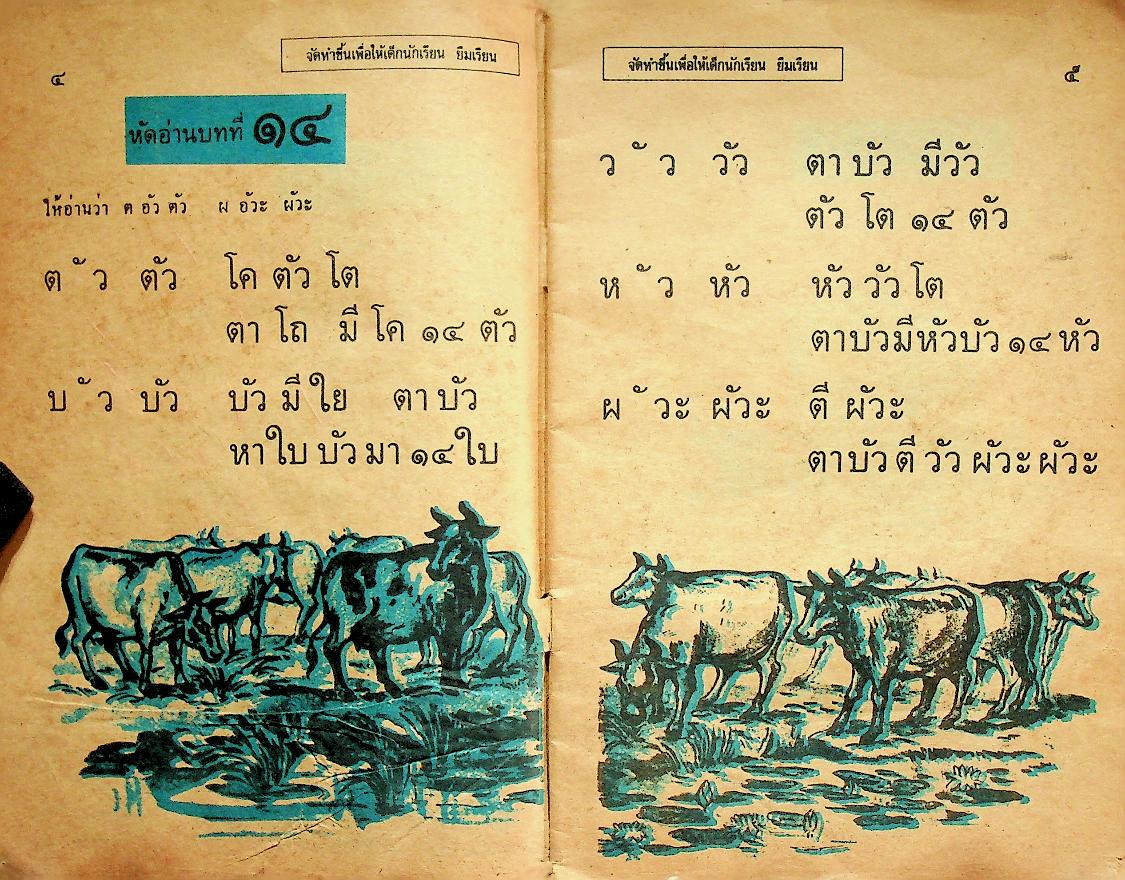 ๔
จัดทำขึ้นเพื่อให้เด็กนักเรียน ยืมเรียน
หัดอ่านบทที่ ๑๔
ให้อ่านว่า ต อัว ตัว ผ อัวะ ผัวะ
ต ั ว ตัว โค ตัว โต
ตา โถ มี โค ๑๔ ตัว
บ ั ว บัว บัว มี ใย ตา บัว
หา ใบ บัว มา ๑๔ ใบ
จัดทำขึ้นเพื่อให้เด็กนักเรียน ยืมเรียน
๕
ว ั ว วัว ตา บัว มีวัว
ตัว โต ๑๔ ตัว
ห ั ว หัว หัว วัว โต
ตาบัวมีหัวบัว ๑๔ หัว
ผ ั วะ ผัวะ ตี ผัวะ
ตาบัว ตี วัว ผัวะ ผัวะ